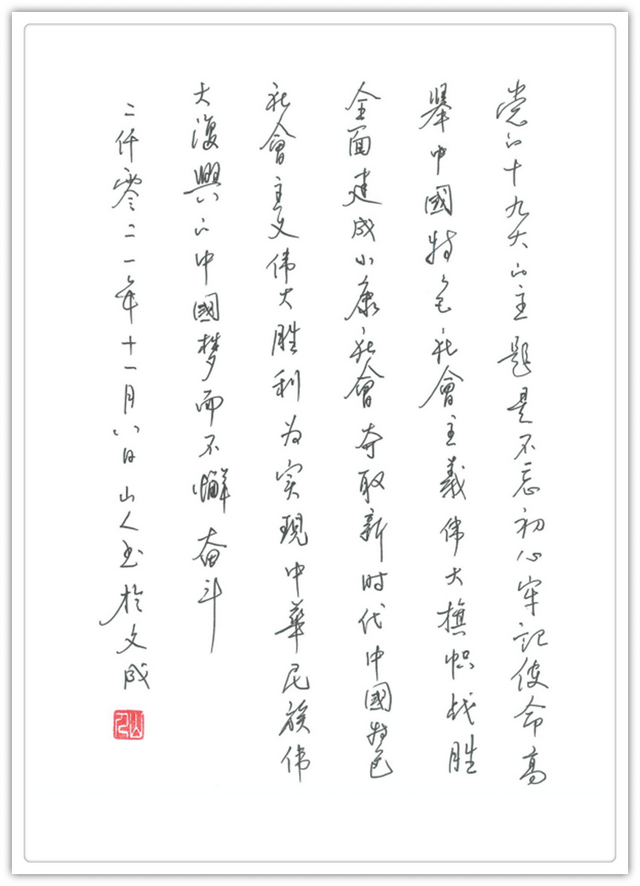 党的十九大的主题是不忘初心牢记使命高
舉中國特色社會主義伟大旗帜战胜
全面建成小康社會夺取新时代中國特色
社會主义伟大胜利为实現中華民族伟
大復興的中國梦而不懈奋斗
二仟零二一年十一月八日山人书於文成
山人